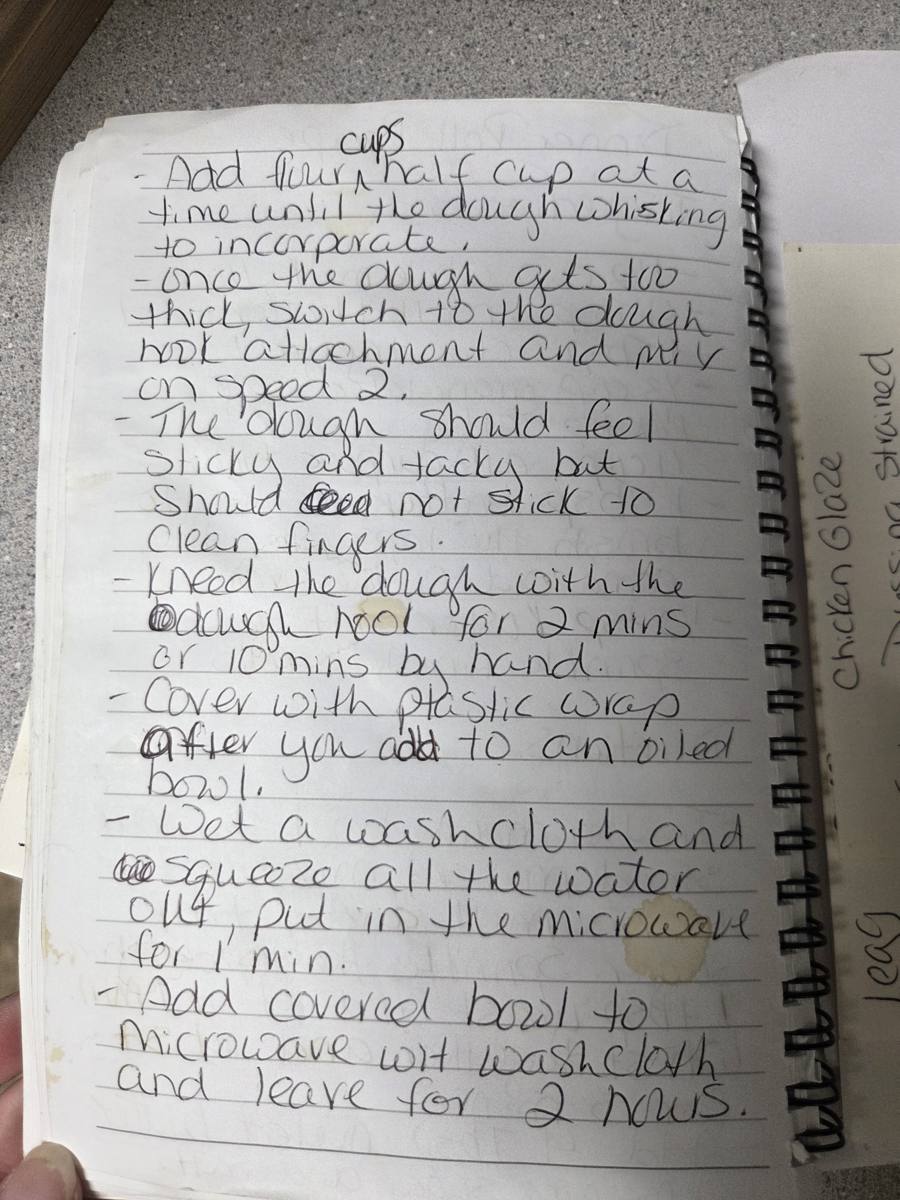 cups
- Add flour ^ half cup at a
time until the dough whisking
to incorporate.
- once the dough gets too
thick, switch to the dough
hook attachment and mix
on speed 2.
- The dough should feel
sticky and tacky but
should not stick to
clean fingers.
- kneed the dough with the
dough hook for 2 mins
or 10 mins by hand.
- Cover with plastic wrap
after you add to an oiled
bowl.
- Wet a washcloth and
squeeze all the water
out, put in the microwave
for 1 min.
- Add covered bowl to
microwave wit washcloth
and leave for 2 hours.
Chicken Glaze
strained